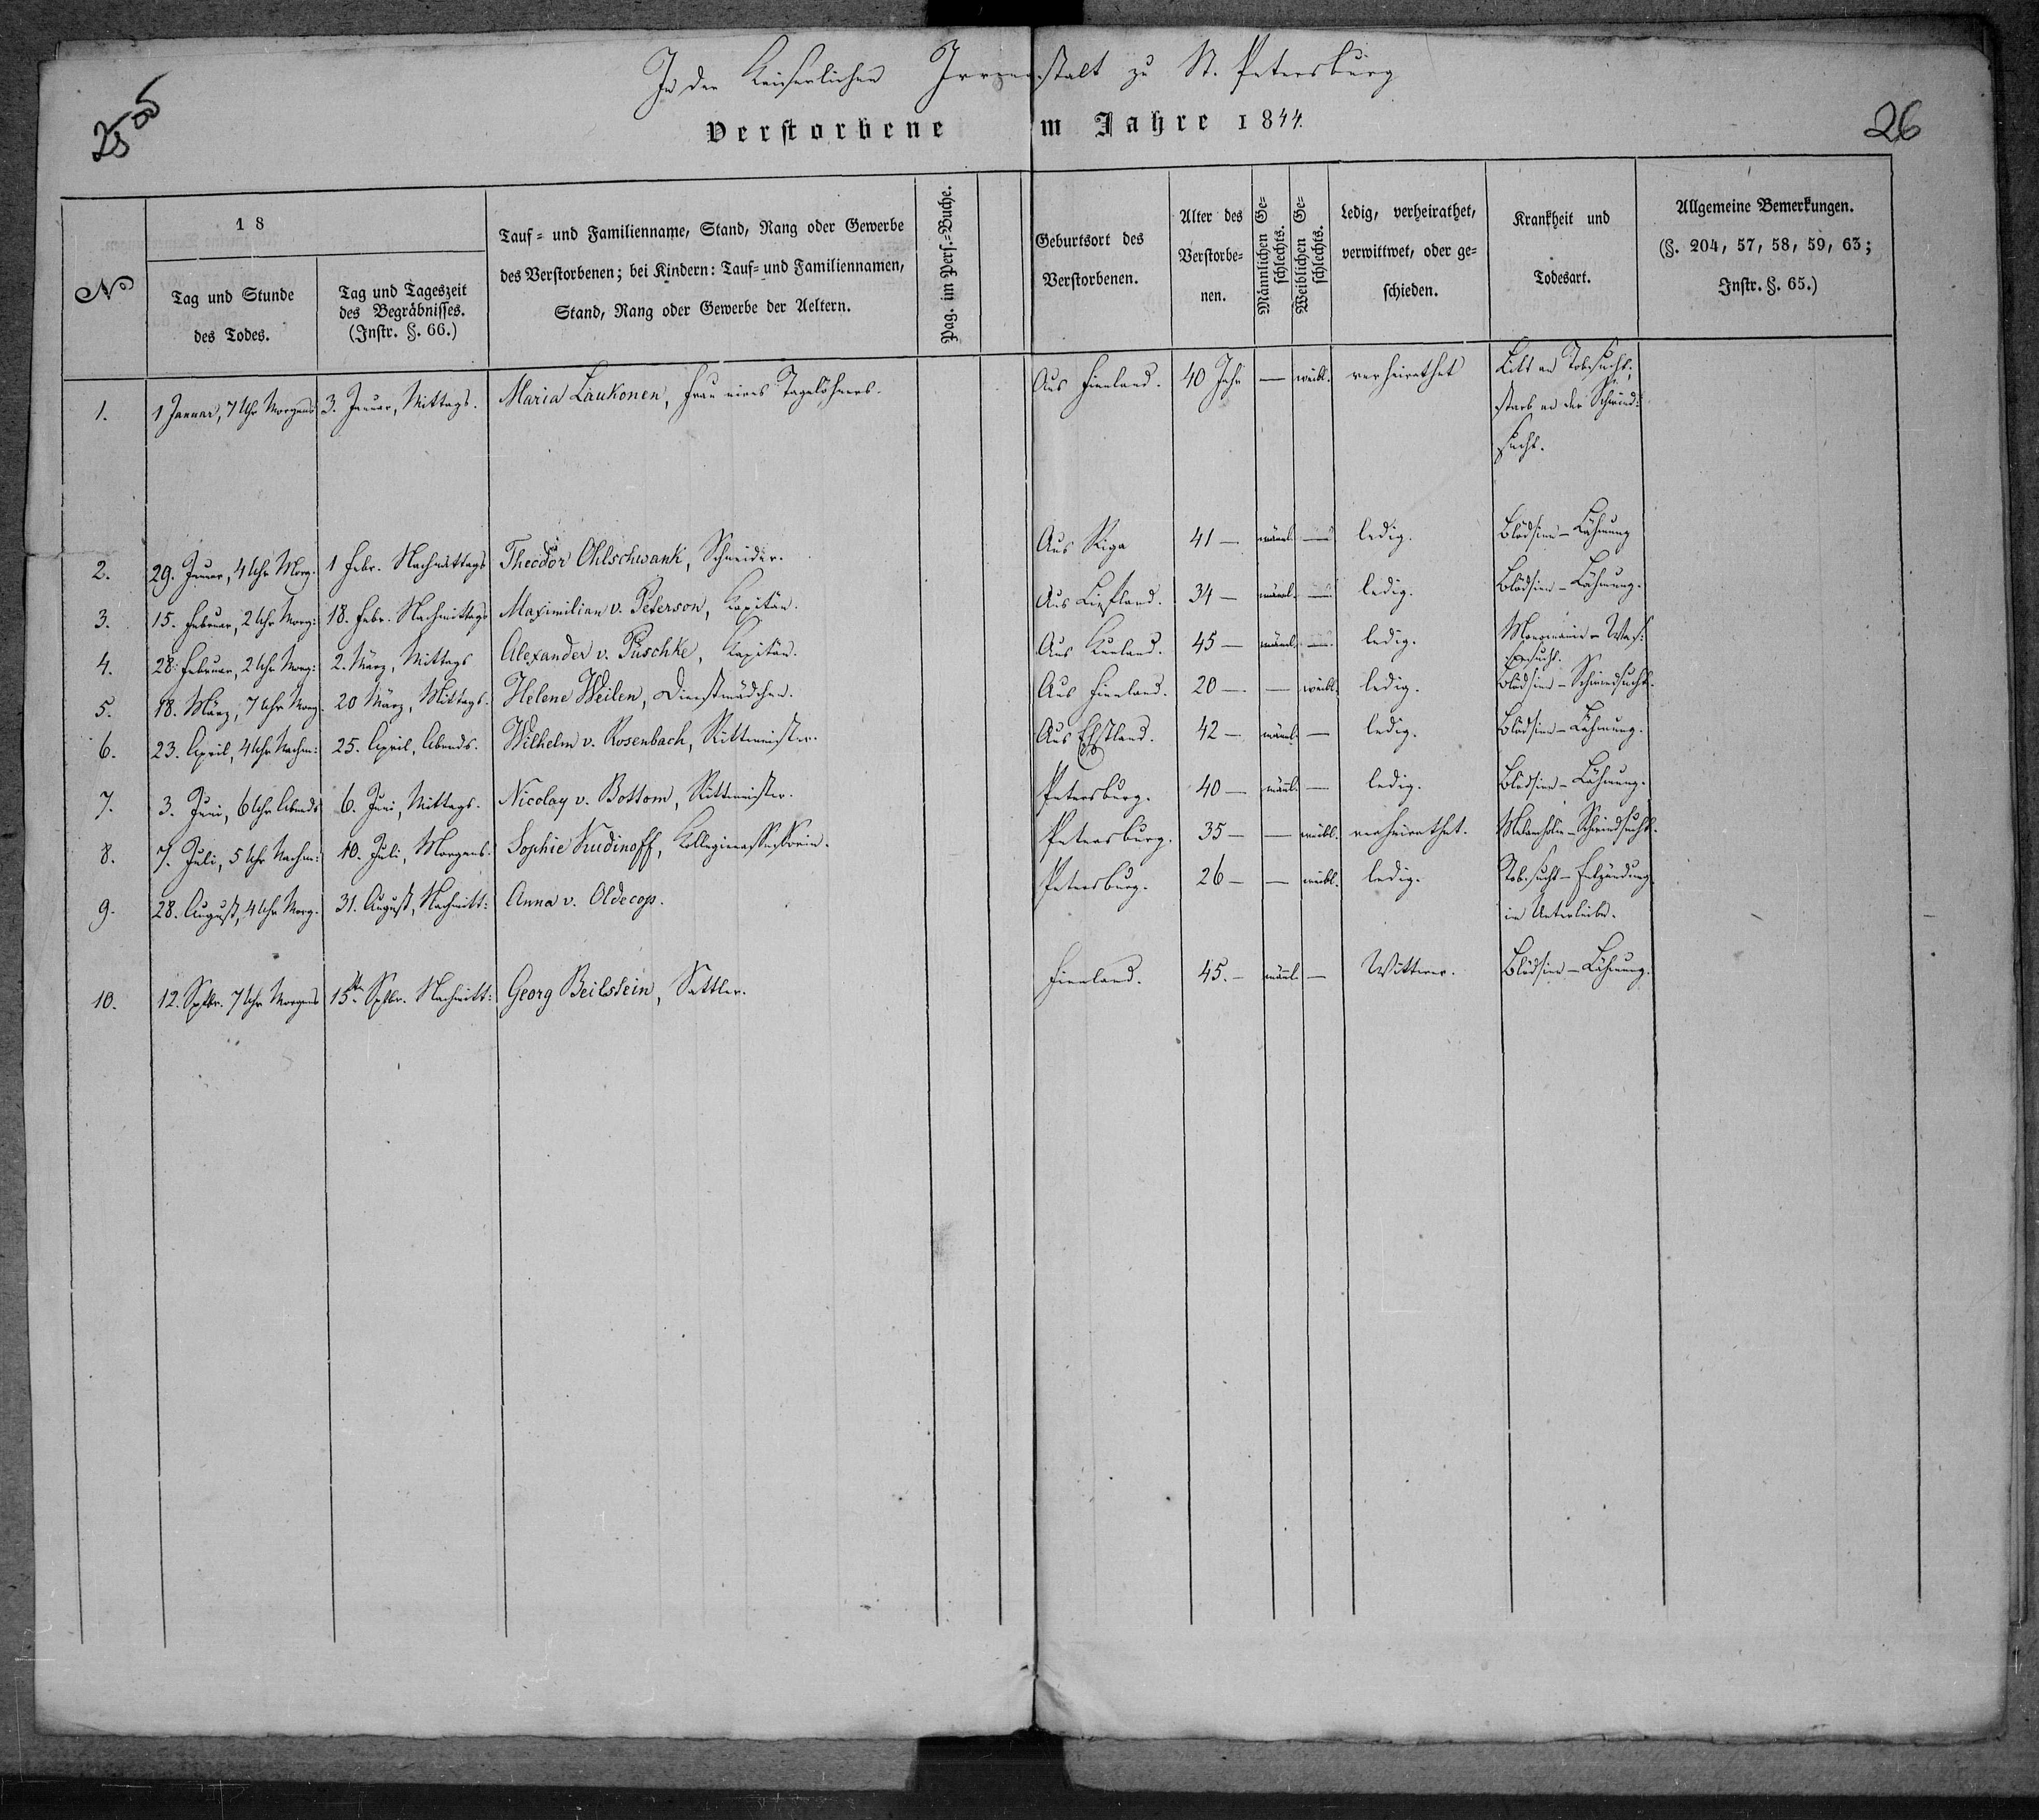 In der Kaiserlichen Irrenanstalt zu St. Petersburg
25 ob
26
Verstorbene im Jahre 1844.
No
18
Tag und Stunde
des Todes.
Tag und Tageszeit
des Begräbnisses.
(Instr. §. 66.)
Tauf- und Familienname, Stand, Rang oder Gewerbe
des Verstorbenen; bei Kindern: Tauf- und Familiennamen,
Stand, Rang oder Gewerbe der Aeltern.
Pag. im Pers.-Buche.
Geburtsort des
Verstorbenen.
Alter des
Verstorbe-
nen.
Männlichen Ge-
schlechts.
Weiblichen Ge-
schlechts.
Ledig, verheirathet,
verwittwet, oder ge-
schieden.
Krankheit und
Todesart.
Allgemeine Bemerkungen.
(§. 204, 57, 58, 59, 63;
Instr. §. 65.)
1. 1 Januar, 7 Uhr Morgens 3. Januar, Mittags. Maria Laukonen, Frau eines Tagelöhners. Aus Finnland. 40 Jahr — weibl. verheirathet Litt an Tobsucht,
starb an der Schwind-
sucht.
2. 29. Januar, 4 Uhr Morg. 1 Febr. Nachmittags Theodor Ohlschwank, Schneider. Aus Riga 41 — männl. — ledig. Blödsinn – Lähmung
3. 15. Februar, 2 Uhr Morg: 18. Febr. Nachmittags Maximilian v. Peterson, Kapitän. Aus Liefland. 34 — männl. — ledig. Blödsinn – Lähmung.
4. 28. Februar, 2 Uhr Morg: 2. März, Mittags Alexander v. Püschke, Kapitän. Aus Kurland. 45 — männl. — ledig. Monomanie – Was-
sersucht.
5. 18. März, 7 Uhr Morg. 20 März, Mittags. Helene Weilen, Dienstmädchen. Aus Finnland. 20 — — weibl. ledig. Blödsinn – Schwindsucht.
6. 23. April, 4 Uhr Nachm: 25. April, Abends. Wilhelm v. Rosenbach, Rittmeister. Aus Ehstland. 42 — männl. — ledig. Blödsinn – Lähmung.
7. 3. Juni, 6 Uhr Abends 6. Juni, Mittags. Nicolay v. Bottom, Rittmeister. Petersburg. 40 — männl. — ledig. Blödsinn – Lähmung.
8. 7. Juli, 5 Uhr Nachm: 10. Juli, Morgens. Sophie Kudinoff, Kollegienassessorin. Petersburg. 35 — — weibl. verheirathet. Melancholie – Schwindsucht.
9. 28. August, 4 Uhr Morg. 31. August, Nachmitt: Anna v. Oldecop. Petersburg. 26 — — weibl. ledig. Tobsucht – Entzündung
im Unterleibe.
10. 12. Septbr. 7 Uhr Morgens 15ten Septbr. Nachmitt: Georg Beilstein, Sattler. Finnland. 45. — männl. — Wittwer. Blödsinn – Lähmung.